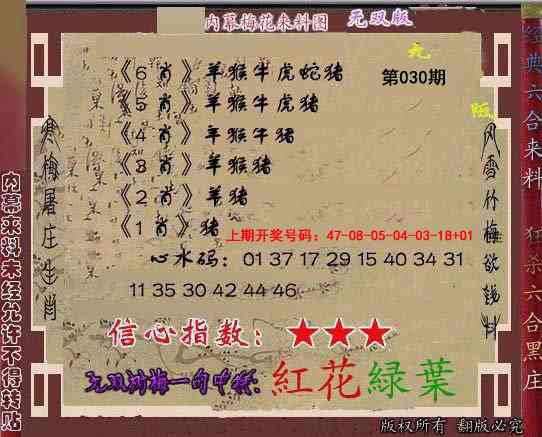 内幕梅花来料图 无双版
九
《6肖》羊猴牛虎蛇猪
第030期
《5肖》羊猴牛虎猪
《4肖》羊猴牛猪
《3肖》羊猴猪
《2肖》羊猪
《1肖》猪
上期开奖号码：47-08-05-04-03-18+01
心水码：01 37 17 29 15 40 34 31
11 35 30 42 44 46
信心指数：★★★
一句中特：紅花緑葉
版权所有 翻版必究
寒梅屠庄生肖
风雪竹梅欲钱料
内幕来料未经允许不得转贴
经典六合来料 狂杀六合黑庄